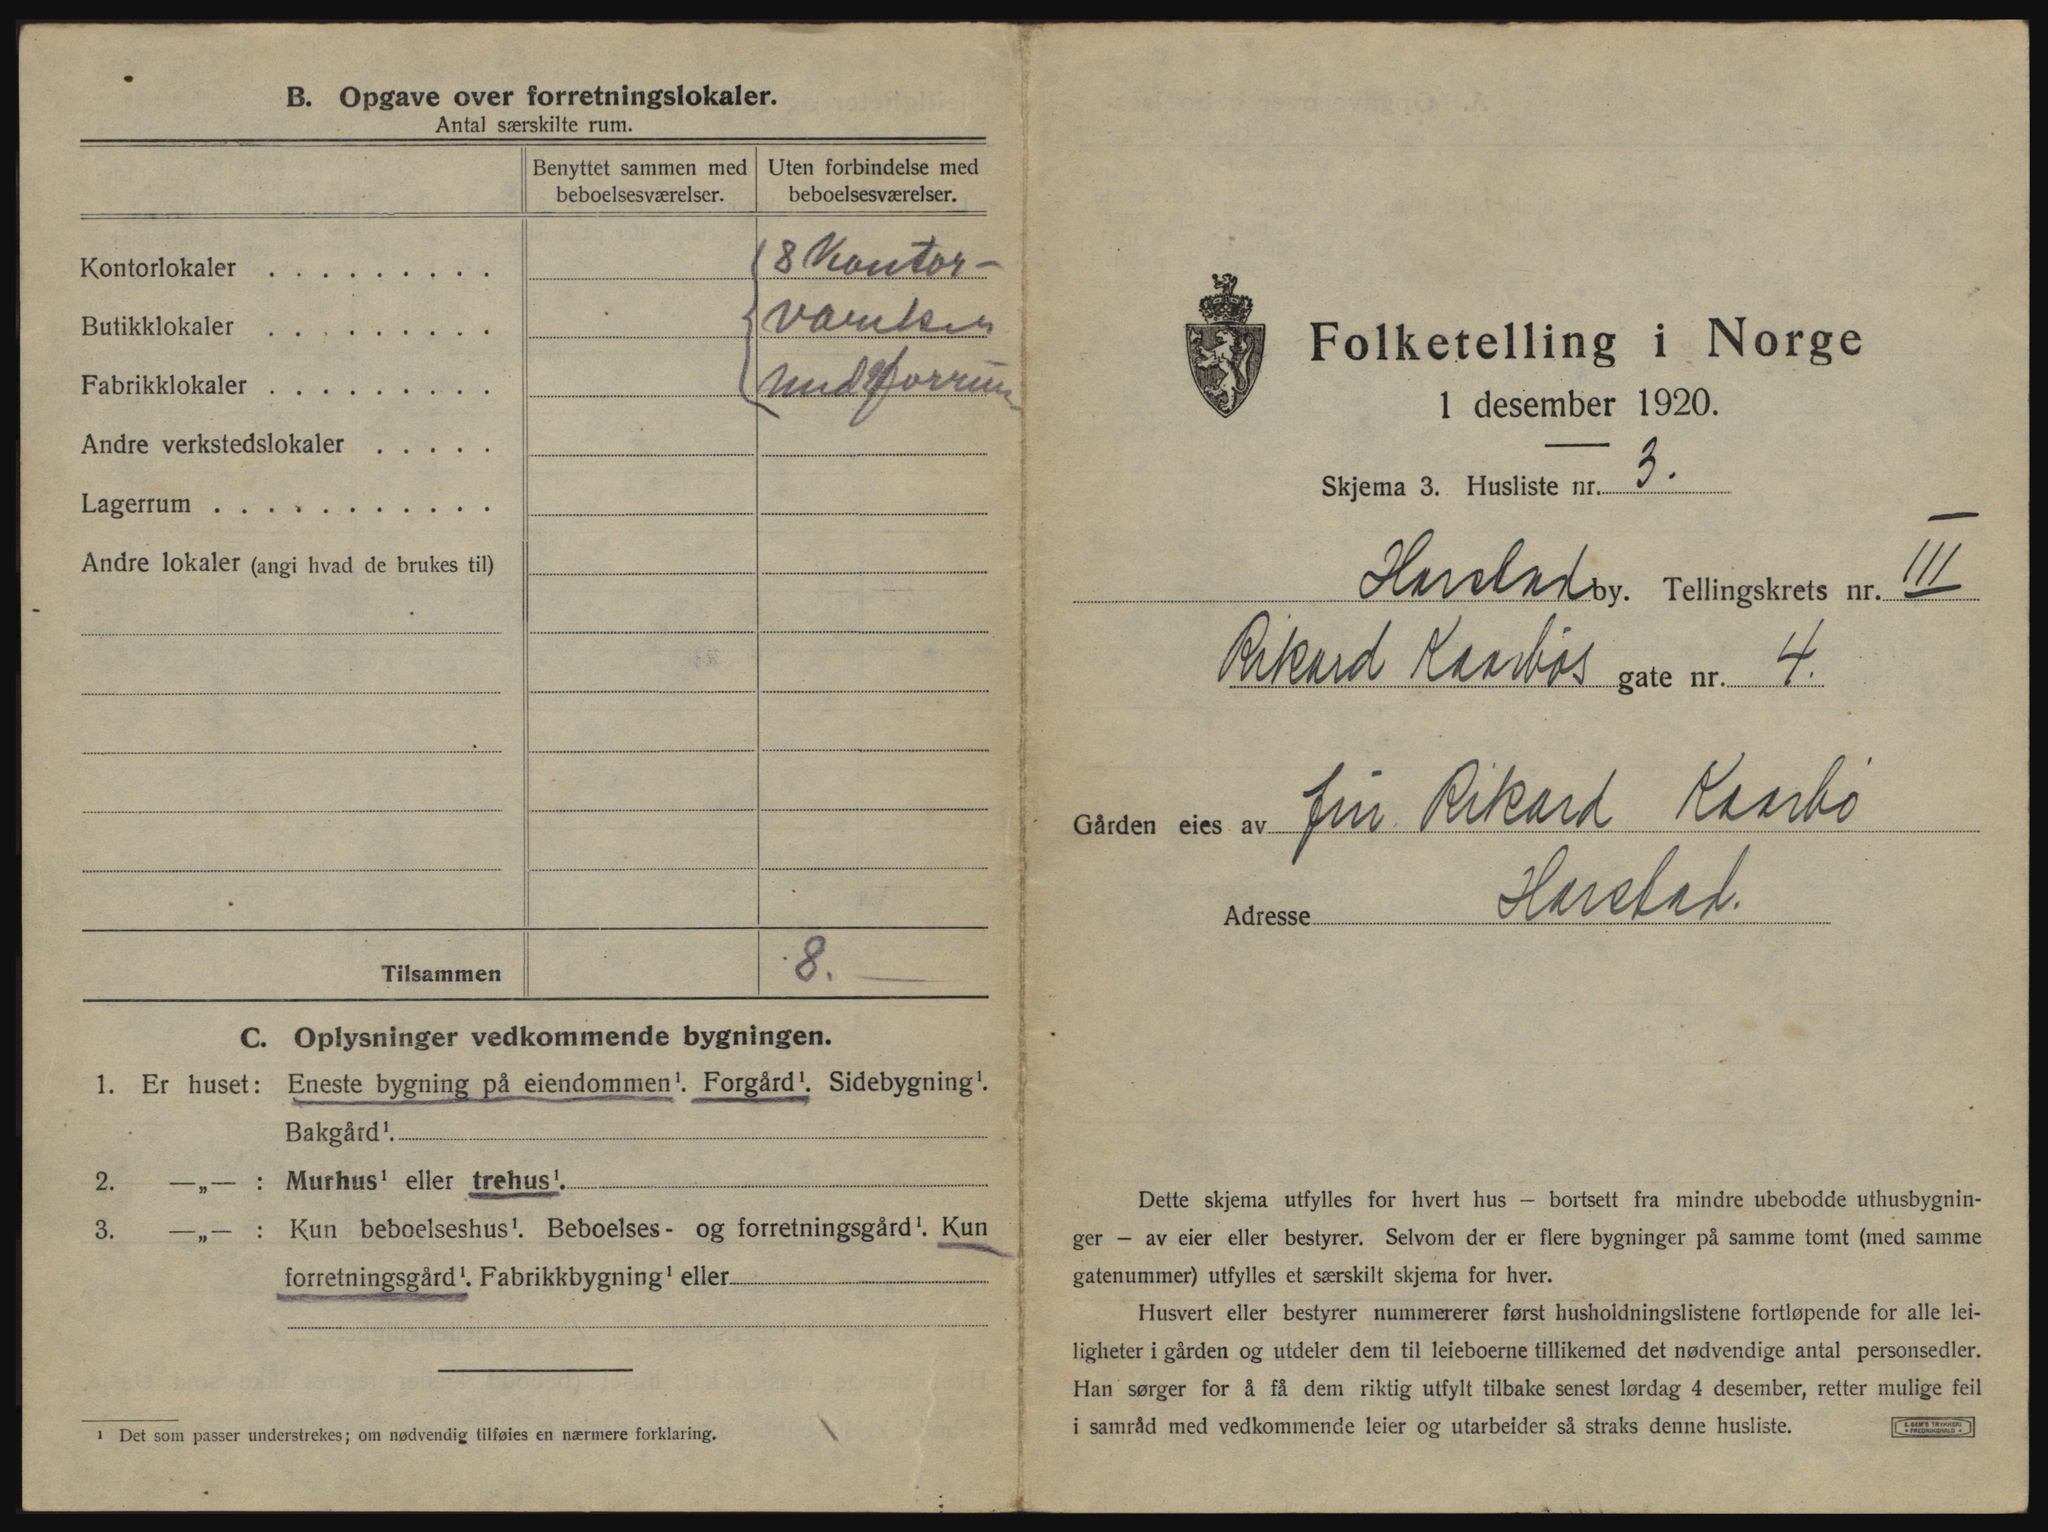 B. Opgave over forretningslokaler.
Antal særskilte rum.
Benyttet sammen med beboelsesværelser.
Uten forbindelse med beboelsesværelser.
Kontorlokaler . . . . . . . . . 8 Kontor-
Butikklokaler . . . . . . . . .
Fabrikklokaler . . . . . . . . .
Andre verkstedslokaler . . . . .
Lagerrum . . . . . . . . . . .
Andre lokaler (angi hvad de brukes til)
Tilsammen 8.
C. Oplysninger vedkommende bygningen.
1. Er huset: Eneste bygning på eiendommen¹. Forgård¹. Sidebygning¹.
Bakgård¹.
2. —„— : Murhus¹ eller trehus¹.
3. —„— : Kun beboelseshus¹. Beboelses- og forretningsgård¹. Kun
forretningsgård¹. Fabrikkbygning¹ eller
¹ Det som passer understrekes; om nødvendig tilføies en nærmere forklaring.
Folketelling i Norge
1 desember 1920.
Skjema 3. Husliste nr. 3.
Harstad by. Tellingskrets nr. III
Rikard Kaarbøs gate nr. 4.
Gården eies av Rikard Kaarbø
Adresse Harstad.
Dette skjema utfylles for hvert hus – bortsett fra mindre ubebodde uthusbygnin-
ger – av eier eller bestyrer. Selvom der er flere bygninger på samme tomt (med samme
gatenummer) utfylles et særskilt skjema for hver.
Husvert eller bestyrer nummererer først husholdningslistene fortløpende for alle lei-
ligheter i gården og utdeler dem til leieboerne tillikemed det nødvendige antal personsedler.
Han sørger for å få dem riktig utfylt tilbake senest lørdag 4 desember, retter mulige feil
i samråd med vedkommende leier og utarbeider så straks denne husliste.